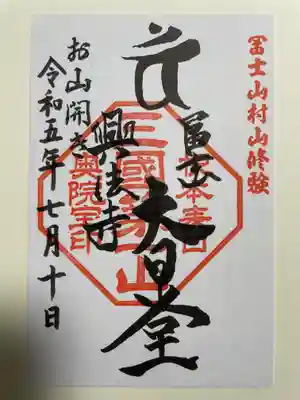 冨士山村山修験
冨士
大日堂
興法寺
三國第一山
奥院宝印
お山開き
令和五年七月十日